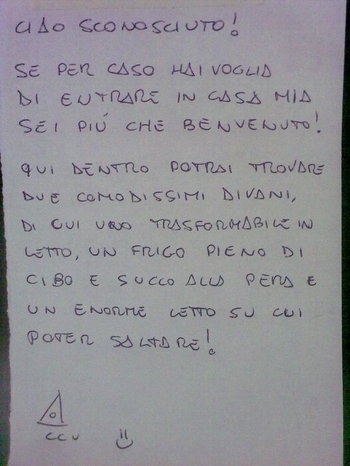 CIAO SCONOSCIUTO!
SE PER CASO HAI VOGLIA
DI ENTRARE IN CASA MIA
SEI PIÚ CHE BENVENUTO!
QUI DENTRO POTRAI TROVARE
DUE COMODISSIMI DIVANI,
DI CUI UNO TRASFORMABILE IN
LETTO, UN FRIGO PIENO DI
CIBO E SUCCO ALLA PERA E
UN ENORME LETTO SU CUI
POTER SALTARE!